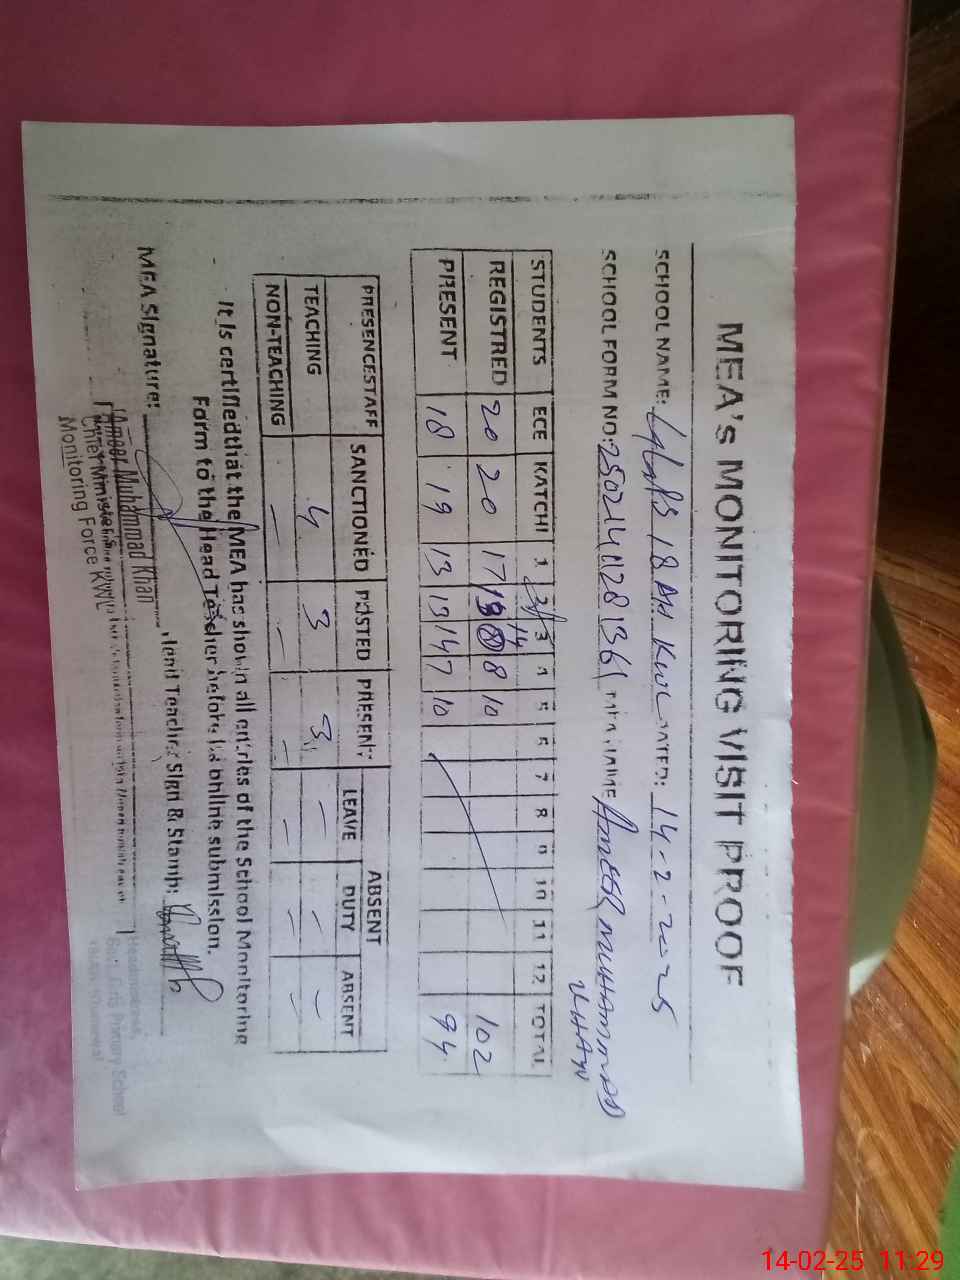 MEA'S MONITORING VISIT PROOF
SCHOOL NAME: 18 AH KWL DATED: 14-2-2025
SCHOOL FORM NO: NAME AMEER MUHAMMAD KHAN
STUDENTS ECE KATCHI 1 2 3 4 5 6 7 8 9 10 11 12 TOTAL
REGISTRED 20 20 17 13 14 8 10 102
PRESENT 18 19 13 13 14 7 10 94
PRESENCESTAFF SANCTIONED POSTED PRESENT ABSENT
LEAVE DUTY ABSENT
TEACHING 4 3 3 - - -
NON-TEACHING - - - - - -
It is certifiedthat the MEA has shown all entries of the School Monitoring
Form to the Head Teacher before online submission.
MEA Signature: Head Teacher Sign & Stamp:
Ameer Muhammad Khan
Chief Minister's
Monitoring Force KWL
Headmistress
Govt. Girls Primary School
14-02-25 11:29